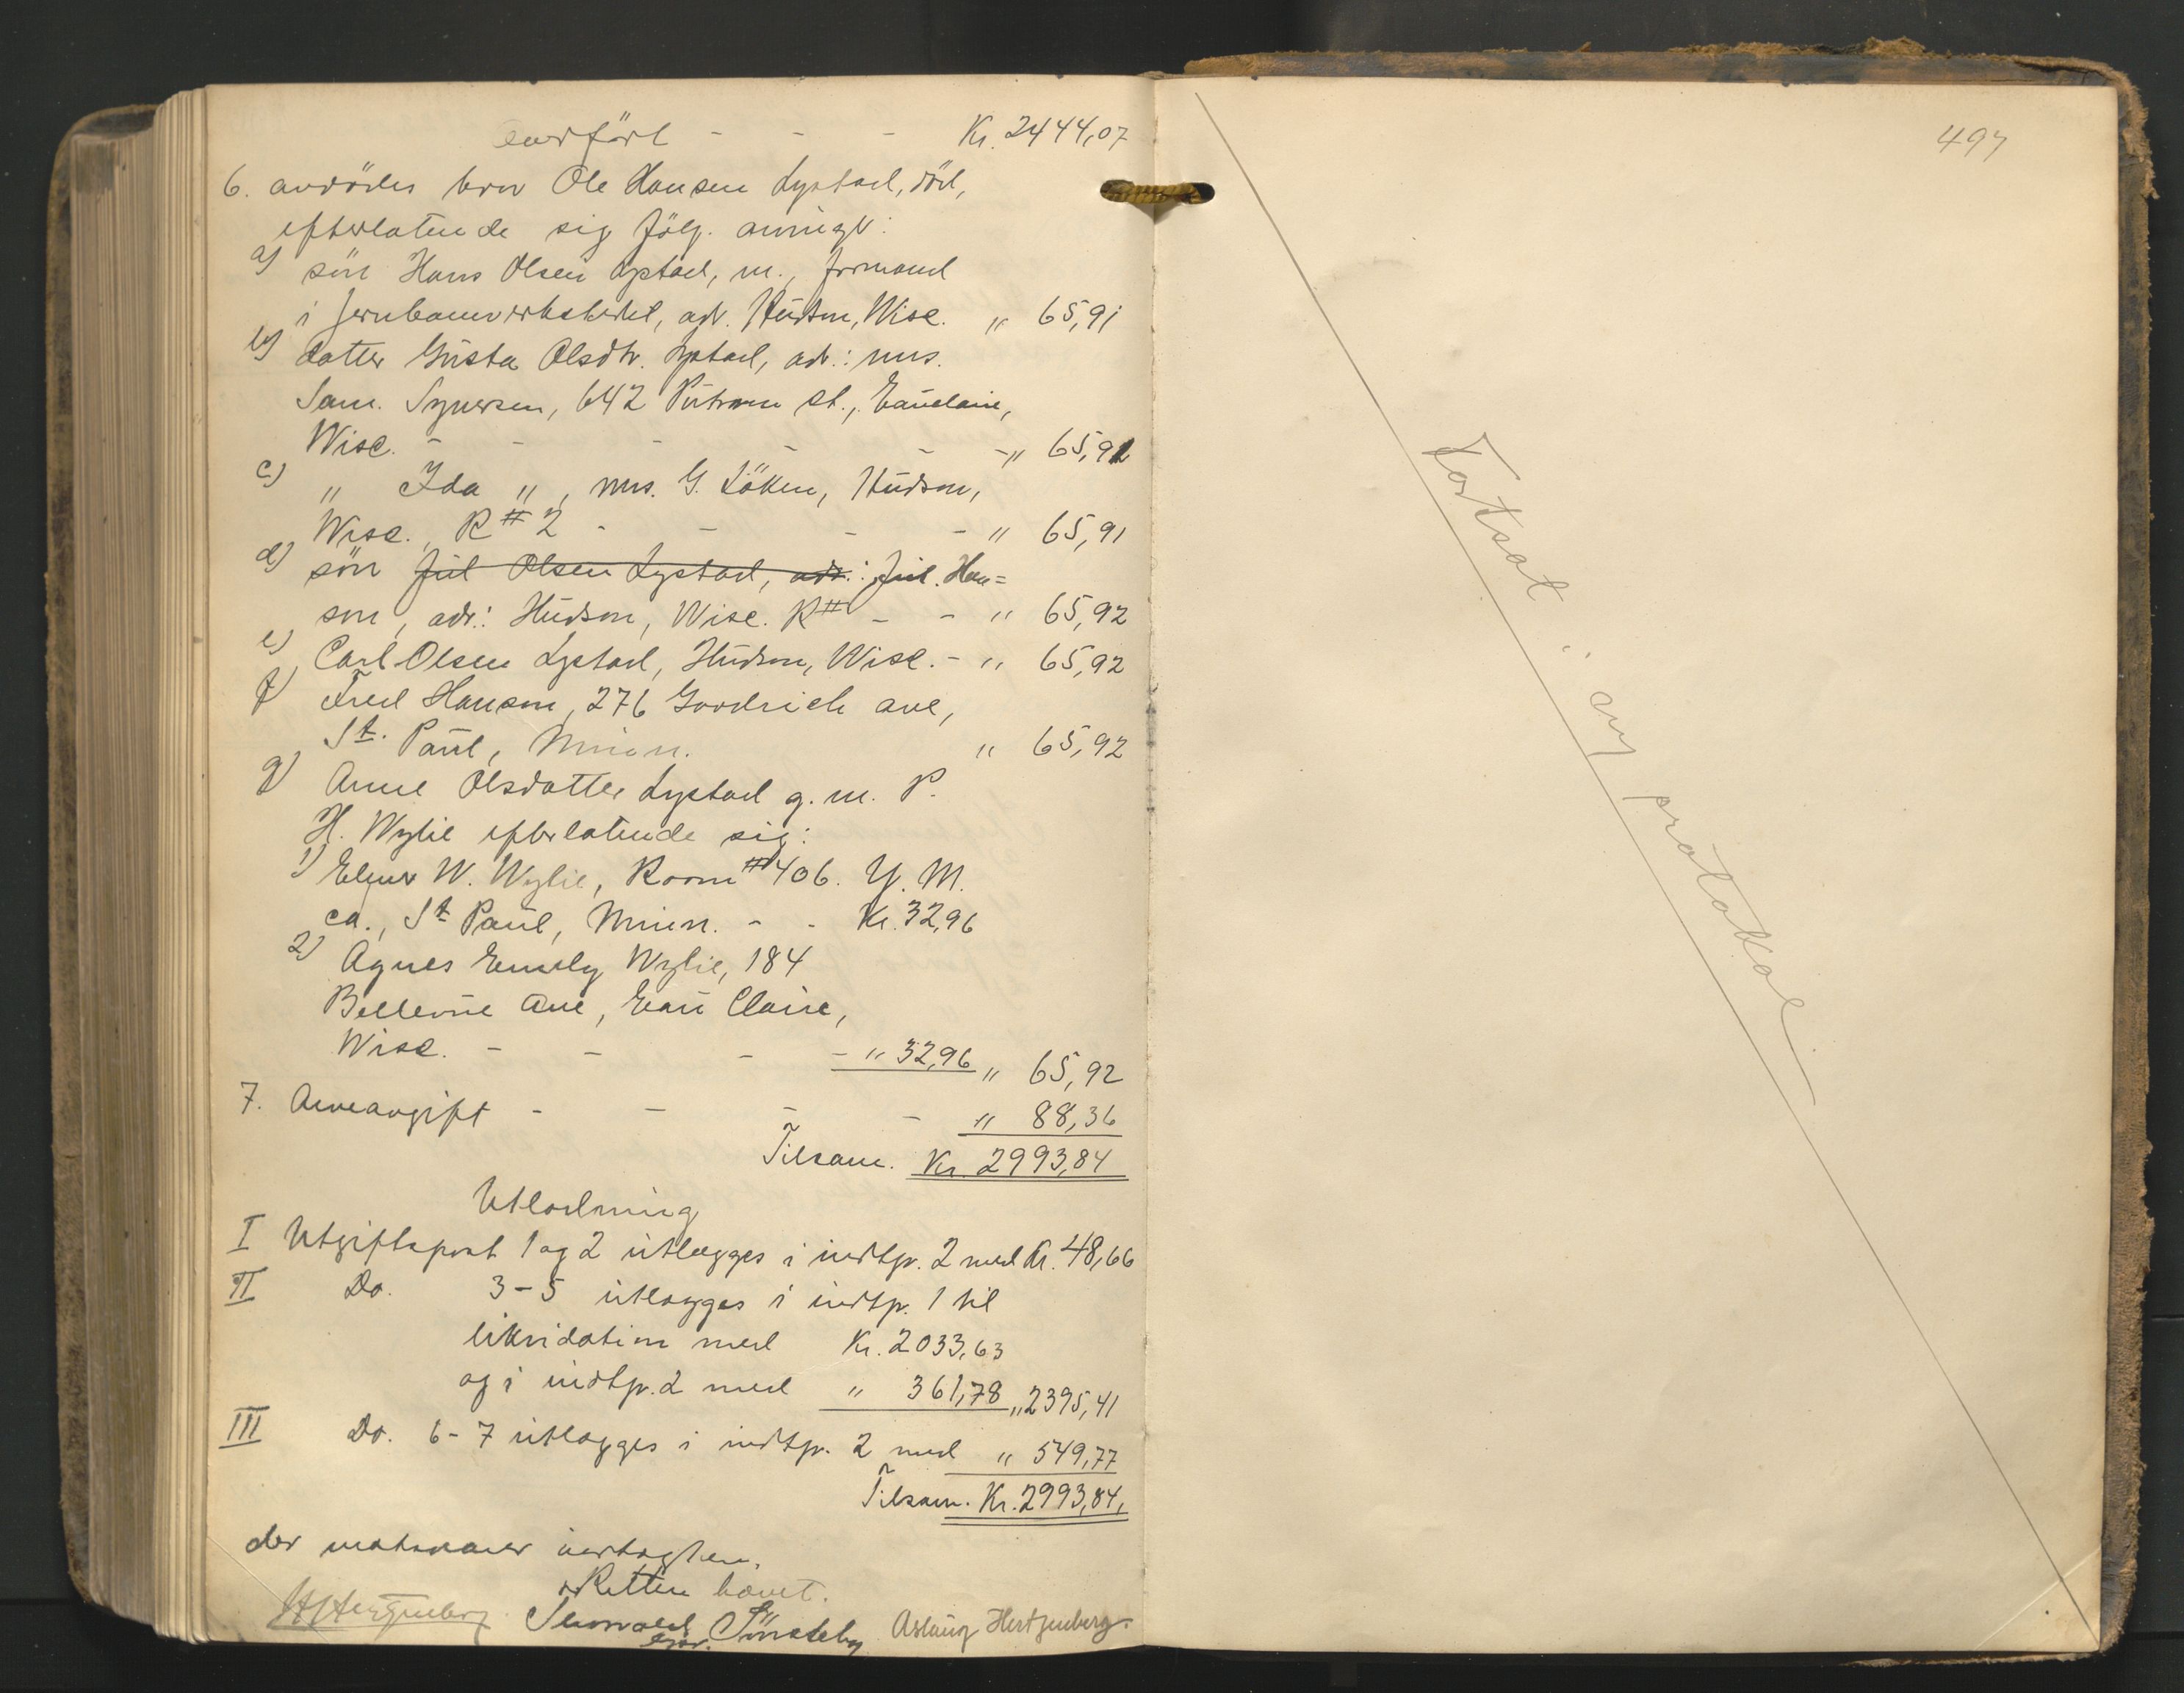 Overfört - - - Kr. 2444,07
6. avdödes bror Ole Hansen Lystad, död,
efterlatende sig fölg. arvinger:
a) sön Hans Olsen Lystad, m., formand
i jernbaneverkstedet, adr. Hudson, Wisc. " 65,91
b) datter Gusta Olsdtr. Lystad, adr.: mrs.
Sam. Synersen, 642 Putnam st., Eauclaire,
Wisc. - - - - - - " 65,91
c) " Ida ", mrs. G. Löken, Hudson,
Wisc., R # 2 - - - - " 65,91
d) sön Jul Olsen Lystad, adr.: Jul. Han=
son, adr.: Hudson, Wisc. R # - - " 65,92
e) Carl Olsen Lystad, Hudson, Wisc. - " 65,92
f) Fred Hanson, 276 Goodrich ave,
St. Paul, Minn. " 65,92
g) Anne Olsdatter Lystad g. m. P.
H. Wylie efterlatende sig:
1) Elmer W. Wylie, Room # 406. Y. M.
ca., St Paul, Minn. - - Kr. 32,96
2) Agnes Emily Wylie, 184
Bellevue Ave, Eau Claire,
Wisc. - - - - " 32,96 " 65,92
7. Arveavgift - - - - " 88,36
Tilsam. Kr. 2993,84
Utlodning
I Utgiftspost 1 og 2 utlægges i indtp. 2 med Kr. 48,66
II Do. 3-5 utlægges i indtp. 1 til
likvidation med Kr. 2033,63
og i indtp. 2 med " 361,78 " 2395,41
III Do. 6-7 utlægges i indtp. 2 med " 549,77
Tilsam. Kr. 2993,84,
Retten hævet.
Aslaug Hertzenberg.
497
Fortsat i ny protokol